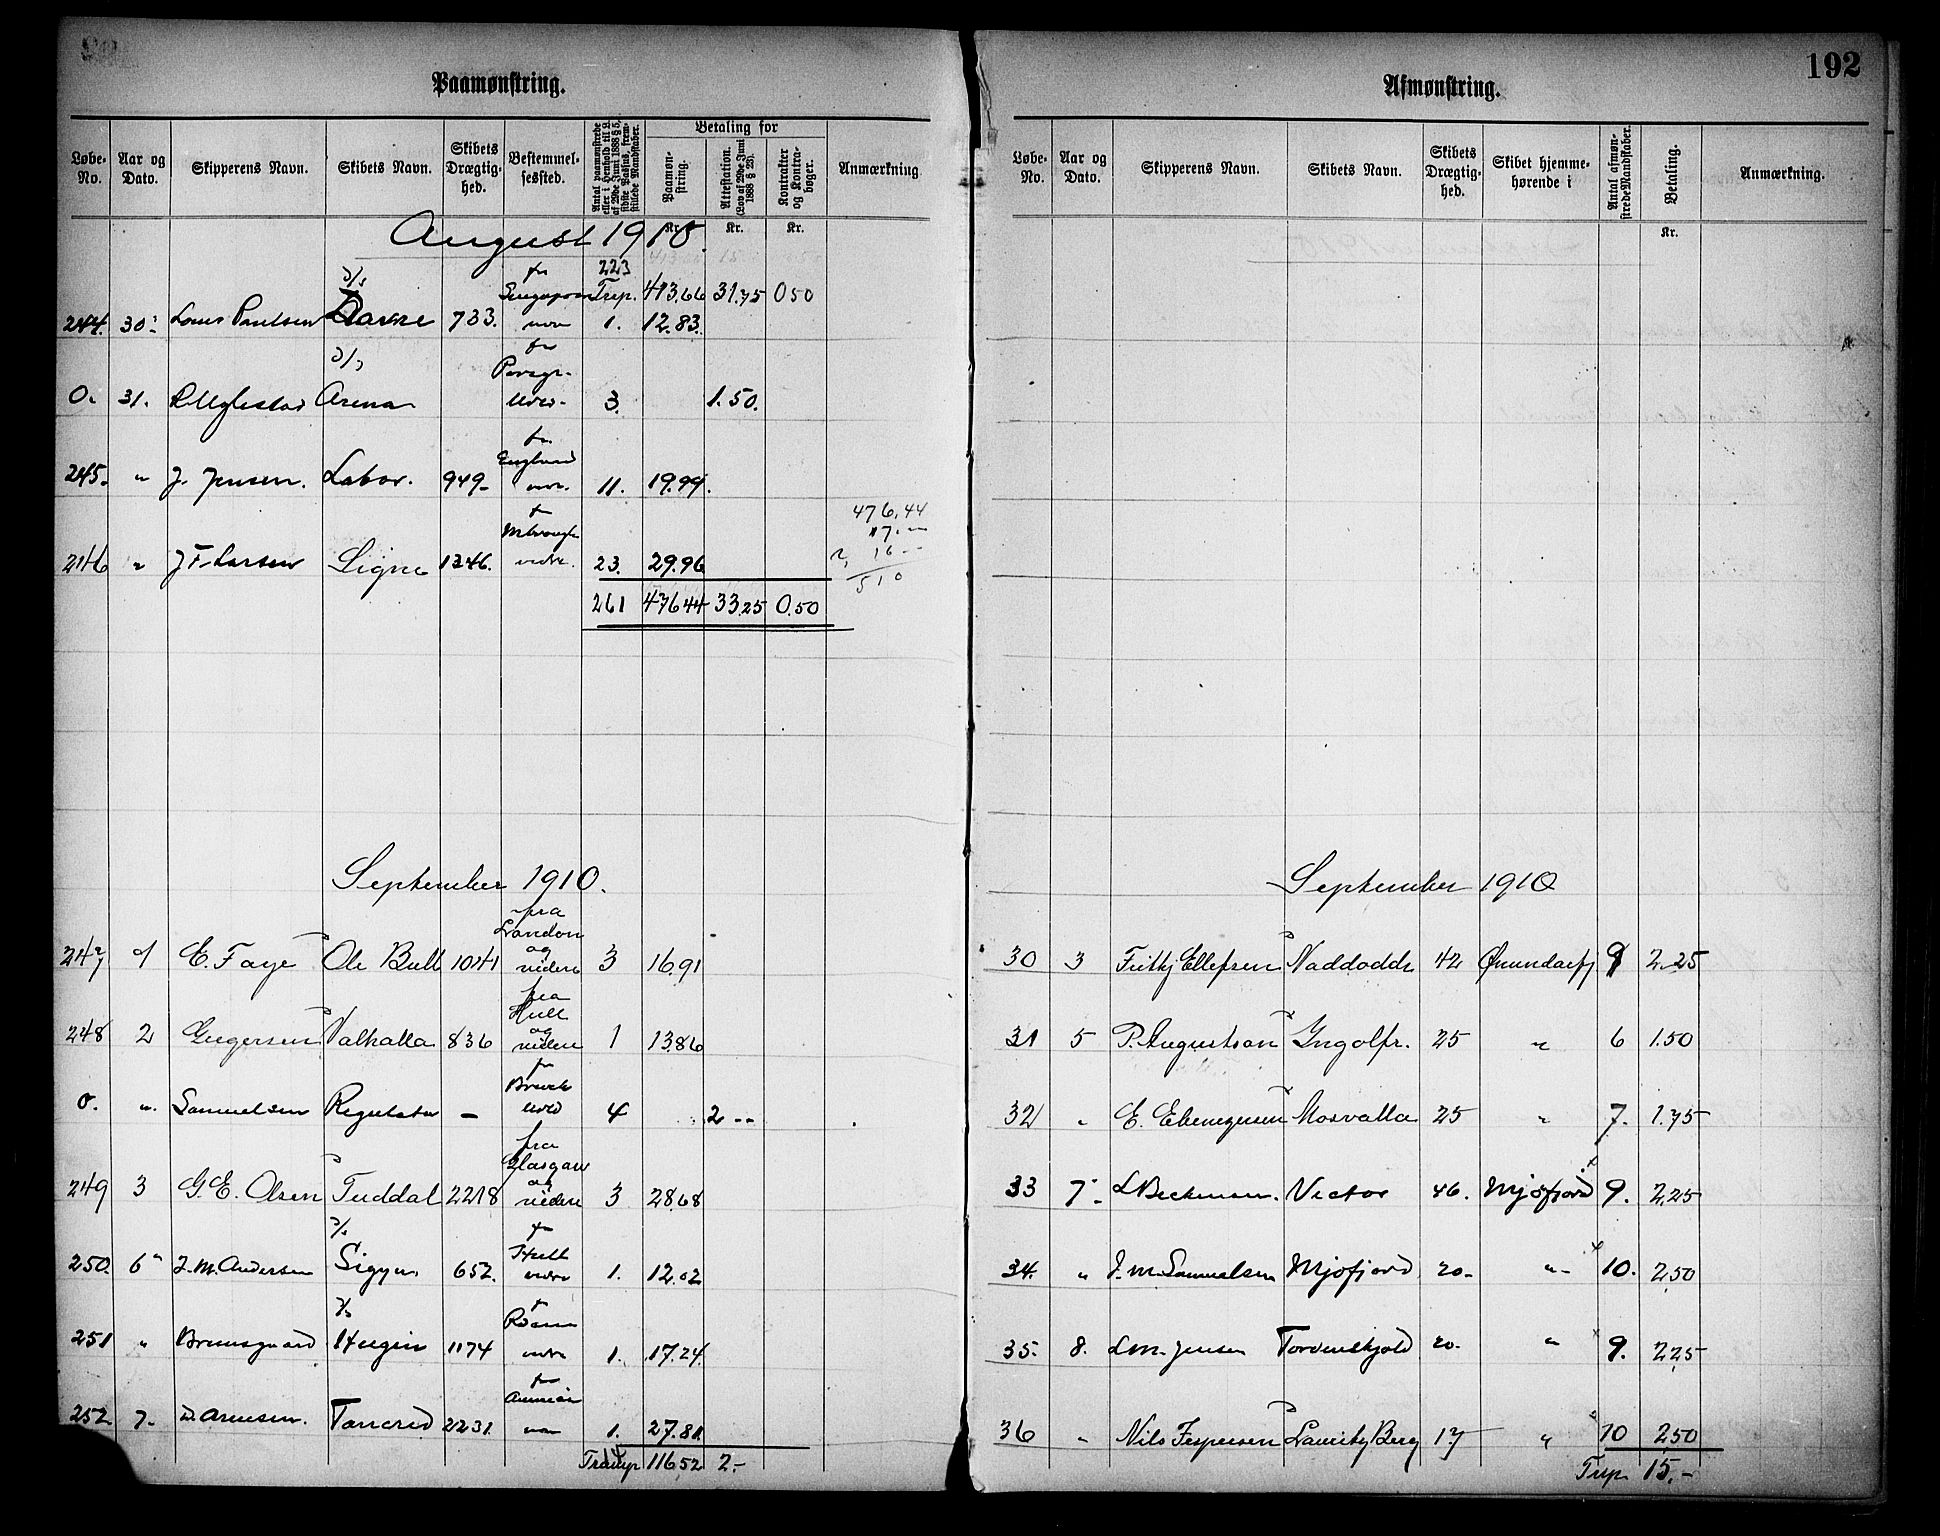 192
Paamønstring.
Løbe-No. Aar og Dato. Skipperens Navn. Skibets Navn. Skibets Drægtighed. Bestemmelsessted. Antal paamønstrede eller i Henhold til L. af 29de Juni 1888 § 5, sidste Passus, fremstillede Mandskaber. Betaling for Paamønstring. Attestation. (Lov af 29de Juni 1888 § 23). Kontrakter og Kontrabøger. Anmærkning.
Kr. Kr. Kr.
August 1910.
223
Trsp. 413.66 31.75 0 50
244. 30. Louis Paulsen 733. 1. 12.83.
0. 31. Arena 3. 1.50.
245. " J. Jensen. Labor. 949- fr. England 11. 19.99.
246 " J F Larsen Signe 1346. 23. 29.96
261 476 44 33.25 0.50
476,44
17.—
16—
510
September 1910.
247 1 E. Faye Ole Bull 1041 fra London og videre 3 16,91
248 2 Valhalla 836 fra Hull og videre 1 13.86
0. " Samuelsen Regulator — 4 2 --
249 3 G. E. Olsen Tuddal 2218 fra Glasgow og videre 3 28.68
250. 6 J. M. Andersen Sigyn 652. 1. 12.02
251 " Brunsgaard Hugin 1174 1. 17.24.
252 7- Tancred 2231. 1. 27.81.
14
Transp 116 52 2.-
Afmønstring.
Løbe-No. Aar og Dato. Skipperens Navn. Skibets Navn. Skibets Drægtighed. Skibet hjemmehørende i Antal afmønstrede Mandskaber. Betaling. Anmærkning.
Kr.
September 1910
30 3 Ellefsen Naddodd 42 9 2.25
31 5 P. Augustson Ingolfr. 25 " 6 1.50
32 " E. Ebenezersen Mosvalla 25 " 7. 1.75
33 7- Victor 46. Mjøfjord 9. 2,25
34. " J. M. Samuelsen Mjofjord 20- " 10. 2,50
35. 8. L M. Jensen Tordenskjold 20. " 9. 2.25
36 " Nils Jespersen Lauritz Berg 17 " 10 2.50
Trsp. 15.-